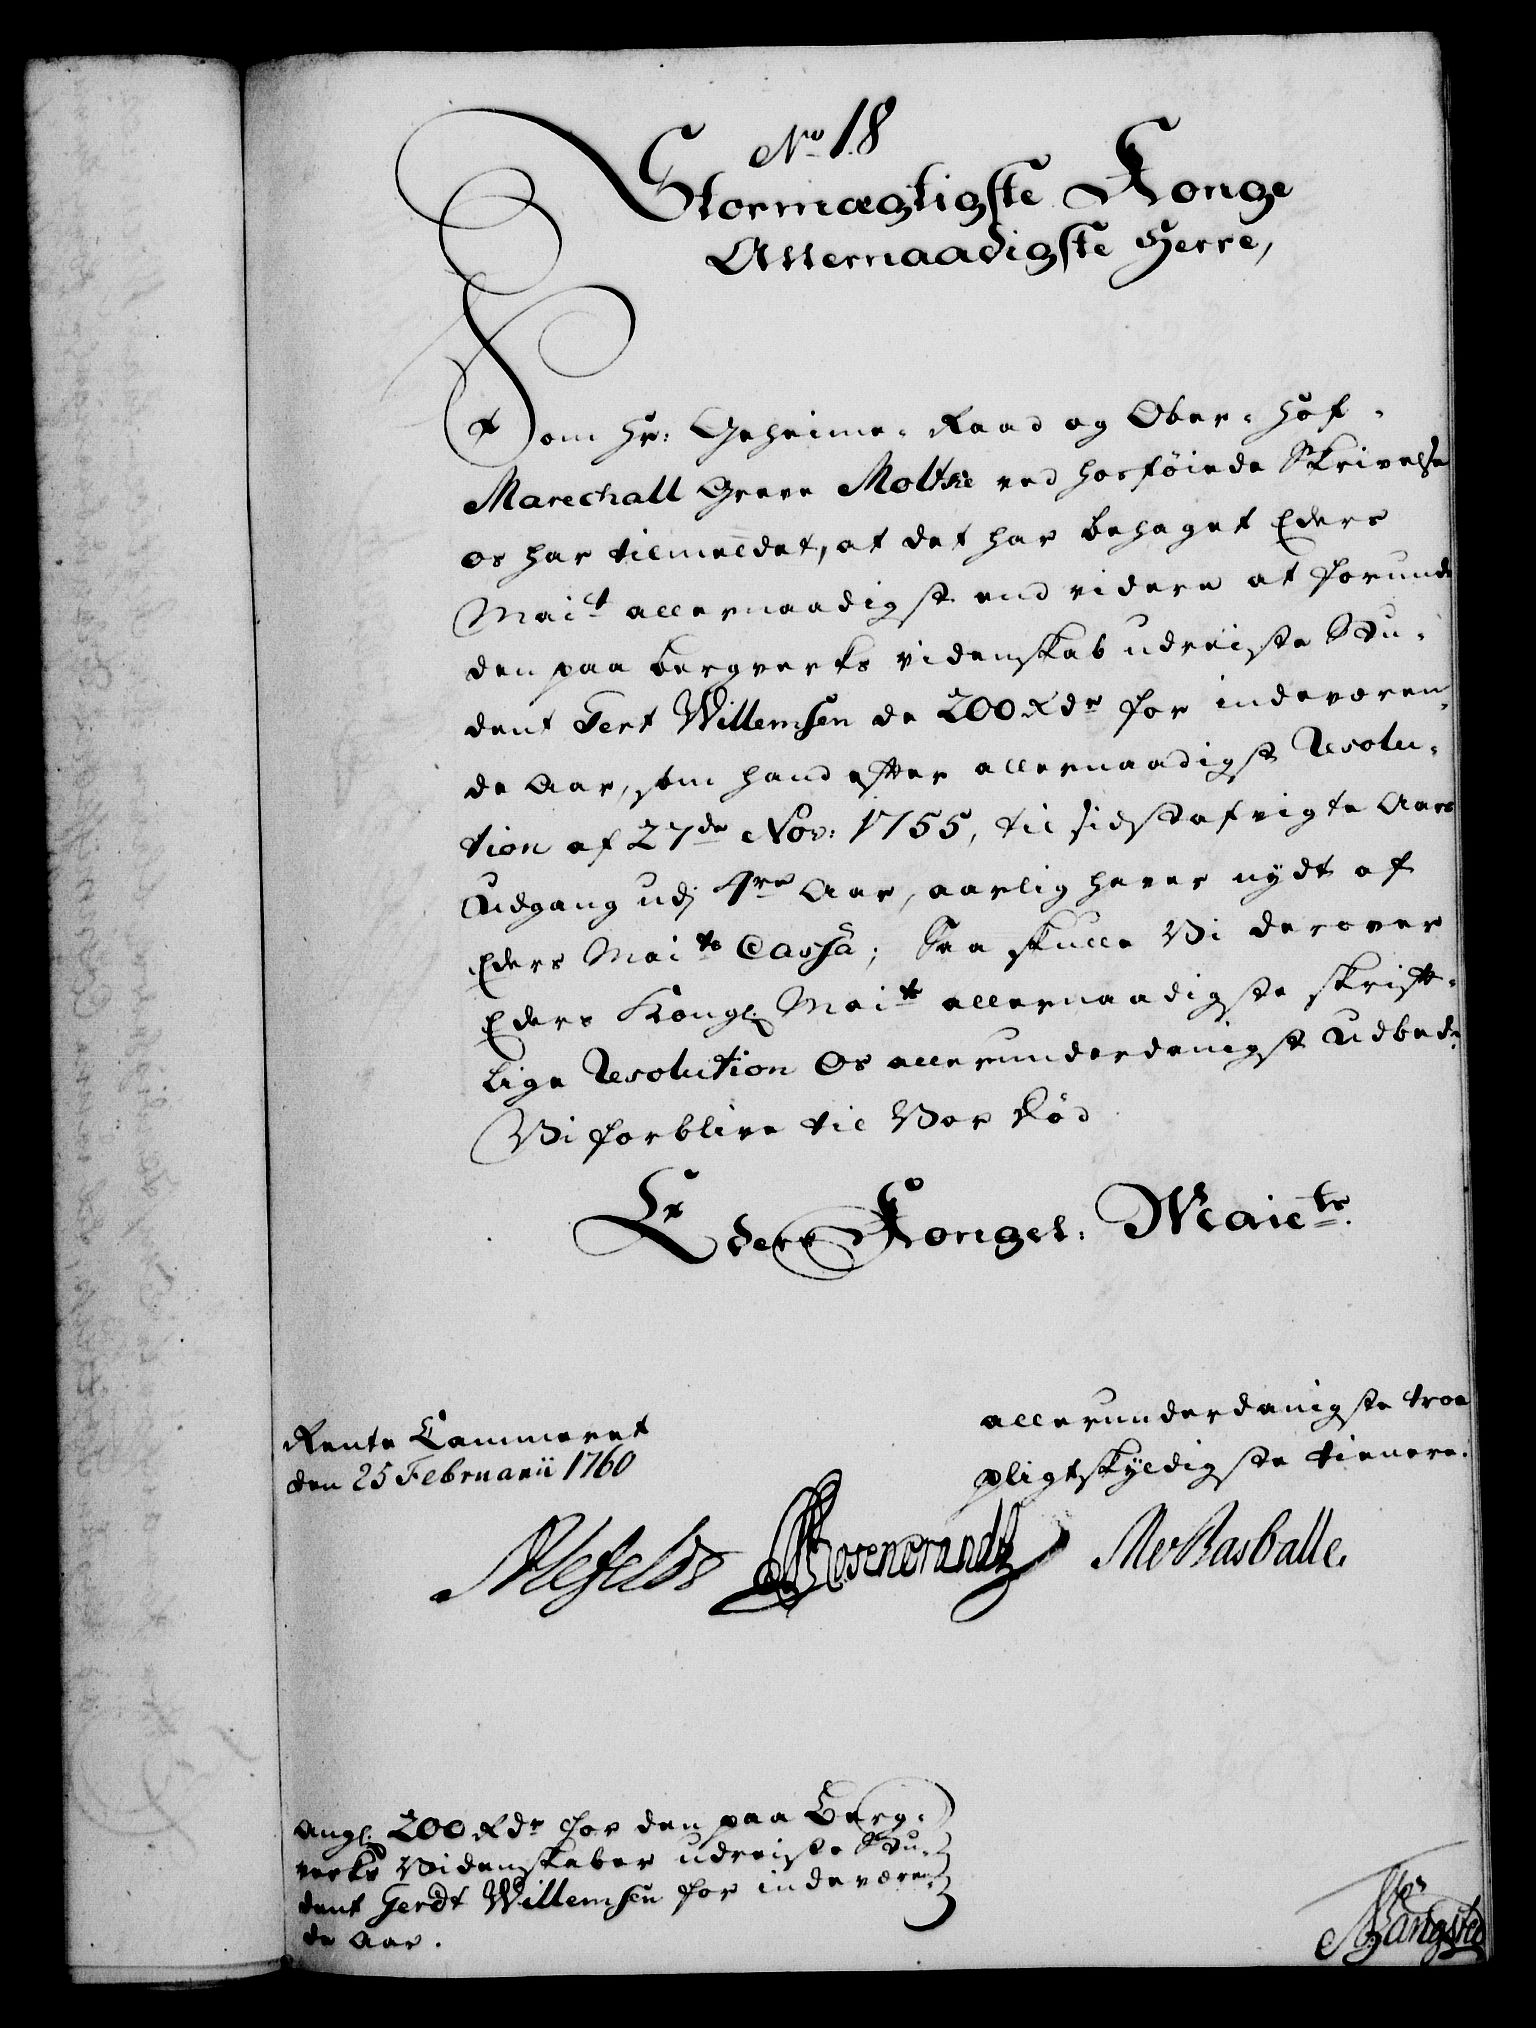 No 18
Stormægtigste Konge
Allernaadigste Herre,
Som Hr: Geheime-Raad og Ober-Hof-
Marechall Greve Moltke ved hosføiede Skrivelse
os har tilmeldet, at det har behaget Eders
Mait allernaadigst end videre at forunde
den paa bergverks videnskab udreiste Stu-
dent Gert Willemsen de 200 Rdr for indeværen-
de Aar, som hand efter allernaadigst Resolu-
tion af 27de Nov: 1755, til sidstafvigte Aars
Udgang udj 4re Aar, aarlig haver nydt af
Eders Maits Cassa; Saa skulle Vi derover
Eders Kongl: Maits allernaadigste skrift-
lige Resolution Os allerunderdanigst Udbede.
Vi forblive til Vor Død
Eders Kongel: Maiets.
allerunderdanigste troe
pligtskyldigste tienere.
Rente Cammeret
den 25 Februarii 1760
Alefeldt Rosencrandtz MvBasballe.
angl: 200 Rdr for den paa Berg-
verks Videnskaber udreiste Stu-
dent Gerdt Willemsen for indeværen-
de Aar.
Bangsted